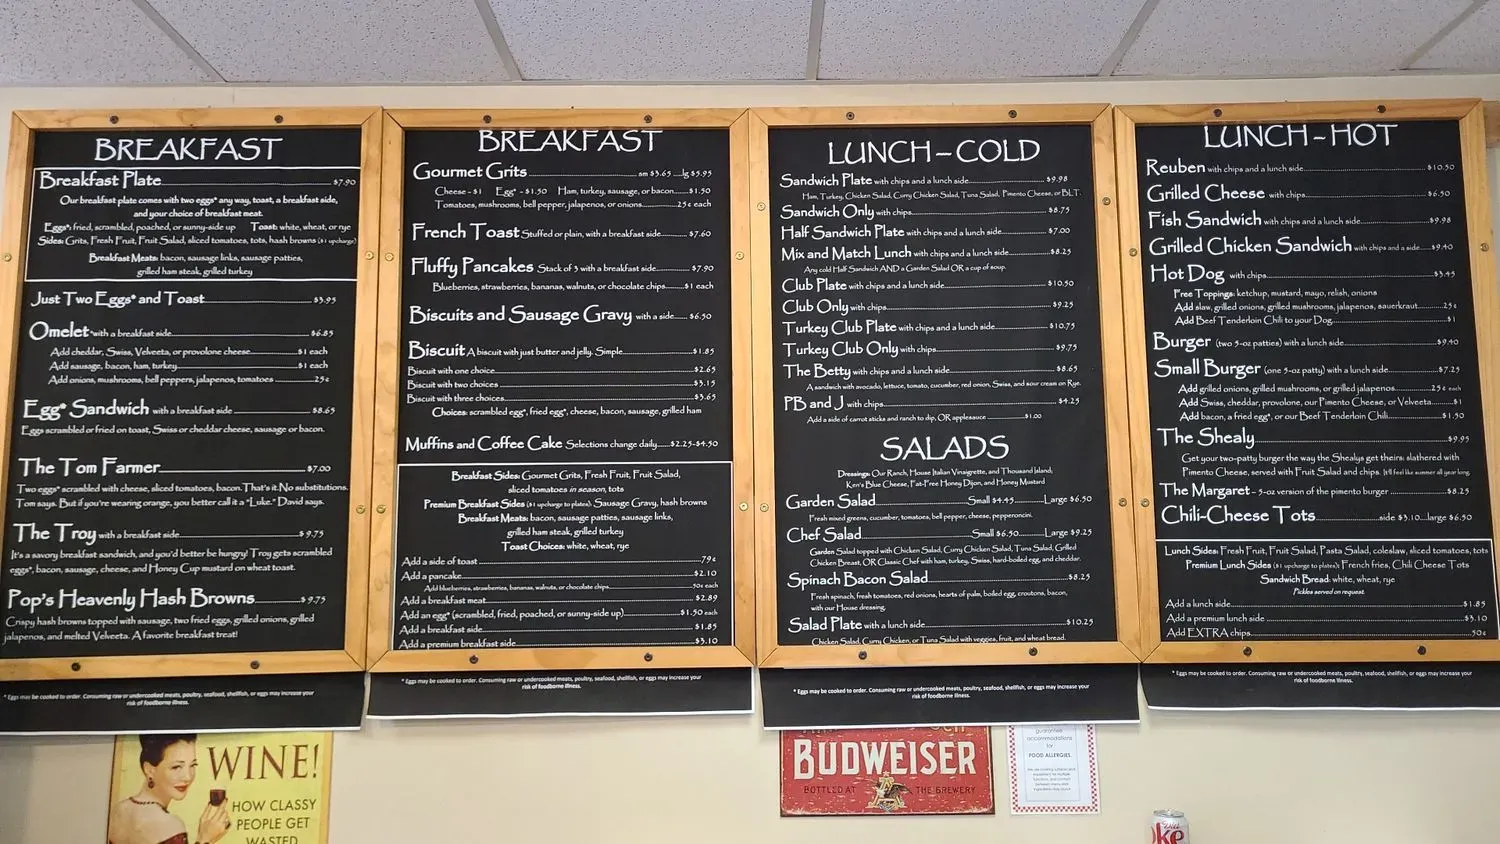 BREAKFAST
Breakfast Plate $7.90
Our breakfast plate comes with two eggs* any way, toast, a breakfast side,
and your choice of breakfast meat.
Eggs*: fried, scrambled, poached, or sunny-side up Toast: white, wheat, or rye
Sides: Grits, Fresh Fruit, Fruit Salad, sliced tomatoes, tots, hash browns ($1 upcharge)
Breakfast Meats: bacon, sausage links, sausage patties,
grilled ham steak, grilled turkey
Just Two Eggs* and Toast $3.95
Omelet *with a breakfast side $6.85
Add cheddar, Swiss, Velveeta, or provolone cheese $1 each
Add sausage, bacon, ham, turkey $1 each
Add onions, mushrooms, bell peppers, jalapenos, tomatoes 25¢
Egg* Sandwich with a breakfast side $8.65
Eggs scrambled or fried on toast, Swiss or cheddar cheese, sausage or bacon.
The Tom Farmer $7.00
Two eggs* scrambled with cheese, sliced tomatoes, bacon. That's it. No substitutions.
Tom says. But if you're wearing orange, you better call it a "Luke." David says.
The Troy with a breakfast side $9.75
It's a savory breakfast sandwich, and you'd better be hungry! Troy gets scrambled
eggs*, bacon, sausage, cheese, and Honey Cup mustard on wheat toast.
Pop's Heavenly Hash Browns $9.75
Crispy hash browns topped with sausage, two fried eggs, grilled onions, grilled
jalapenos, and melted Velveeta. A favorite breakfast treat!
* Eggs may be cooked to order. Consuming raw or undercooked meats, poultry, seafood, shellfish, or eggs may increase your
risk of foodborne illness.
BREAKFAST
Gourmet Grits sm $3.65 lg $5.95
Cheese - $1 Egg* - $1.50 Ham, turkey, sausage, or bacon $1.50
Tomatoes, mushrooms, bell pepper, jalapenos, or onions 25¢ each
French Toast Stuffed or plain, with a breakfast side $7.60
Fluffy Pancakes Stack of 3 with a breakfast side $7.90
Blueberries, strawberries, bananas, walnuts, or chocolate chips $1 each
Biscuits and Sausage Gravy with a side $6.50
Biscuit A biscuit with just butter and jelly. Simple $1.85
Biscuit with one choice $2.65
Biscuit with two choices $3.15
Biscuit with three choices $3.65
Choices: scrambled egg*, fried egg*, cheese, bacon, sausage, grilled ham
Muffins and Coffee Cake Selections change daily $2.25-$4.50
Breakfast Sides: Gourmet Grits, Fresh Fruit, Fruit Salad,
sliced tomatoes in season, tots
Premium Breakfast Sides ($1 upcharge to plates): Sausage Gravy, hash browns
Breakfast Meats: bacon, sausage patties, sausage links,
grilled ham steak, grilled turkey
Toast Choices: white, wheat, rye
Add a side of toast .79¢
Add a pancake $2.10
Add blueberries, strawberries, bananas, walnuts, or chocolate chips 50¢ each
Add a breakfast meat $2.89
Add an egg* (scrambled, fried, poached, or sunny-side up) $1.50 each
Add a breakfast side $1.85
Add a premium breakfast side $3.10
* Eggs may be cooked to order. Consuming raw or undercooked meats, poultry, seafood, shellfish, or eggs may increase your
risk of foodborne illness.
LUNCH – COLD
Sandwich Plate with chips and a lunch side $9.98
Ham, Turkey, Chicken Salad, Curry Chicken Salad, Tuna Salad, Pimento Cheese, or BLT.
Sandwich Only with chips $8.75
Half Sandwich Plate with chips and a lunch side $7.00
Mix and Match Lunch with chips and a lunch side $8.25
Any cold Half Sandwich AND a Garden Salad OR a cup of soup.
Club Plate with chips and a lunch side $10.50
Club Only with chips $9.25
Turkey Club Plate with chips and a lunch side $10.75
Turkey Club Only with chips $9.75
The Betty with chips and a lunch side $8.65
A sandwich with avocado, lettuce, tomato, cucumber, red onion, Swiss, and sour cream on Rye.
PB and J with chips $4.25
Add a side of carrot sticks and ranch to dip, OR applesauce $1.00
SALADS
Dressings: Our Ranch, House Italian Vinaigrette, and Thousand Island;
Ken's Blue Cheese, Fat-Free Honey Dijon, and Honey Mustard
Garden Salad Small $4.45 Large $6.50
Fresh mixed greens, cucumber, tomatoes, bell pepper, cheese, pepperoncini.
Chef Salad Small $6.50 Large $9.25
Garden Salad topped with Chicken Salad, Curry Chicken Salad, Tuna Salad, Grilled
Chicken Breast, OR Classic Chef with ham, turkey, Swiss, hard-boiled egg, and cheddar.
Spinach Bacon Salad $8.25
Fresh spinach, fresh tomatoes, red onions, hearts of palm, boiled egg, croutons, bacon,
with our House dressing.
Salad Plate with a lunch side $10.25
Chicken Salad, Curry Chicken, or Tuna Salad with veggies, fruit, and wheat bread.
* Eggs may be cooked to order. Consuming raw or undercooked meats, poultry, seafood, shellfish, or eggs may increase your
risk of foodborne illness.
LUNCH – HOT
Reuben with chips and a lunch side $10.50
Grilled Cheese with chips $6.50
Fish Sandwich with chips and a lunch side $9.98
Grilled Chicken Sandwich with chips and a side $9.40
Hot Dog with chips $3.45
Free Toppings: ketchup, mustard, mayo, relish, onions
Add slaw, grilled onions, grilled mushrooms, jalapenos, sauerkraut 25¢
Add Beef Tenderloin Chili to your Dog $1
Burger (two 5-oz patties) with a lunch side $9.40
Small Burger (one 5-oz patty) with a lunch side $7.25
Add grilled onions, grilled mushrooms, or grilled jalapenos 25¢ each
Add Swiss, cheddar, provolone, our Pimento Cheese, or Velveeta $1
Add bacon, a fried egg*, or our Beef Tenderloin Chili $1.50
The Shealy $9.95
Get your two-patty burger the way the Shealys get theirs: slathered with
Pimento Cheese, served with Fruit Salad and chips. It'll feel like summer all year long.
The Margaret – 5-oz version of the pimento burger $8.25
Chili-Cheese Tots side $3.10 large $6.50
Lunch Sides: Fresh Fruit, Fruit Salad, Pasta Salad, coleslaw, sliced tomatoes, tots
Premium Lunch Sides ($1 upcharge to plates): French fries, Chili Cheese Tots
Sandwich Bread: white, wheat, rye
Pickles served on request.
Add a lunch side $1.85
Add a premium lunch side $3.10
Add EXTRA chips 50¢
* Eggs may be cooked to order. Consuming raw or undercooked meats, poultry, seafood, shellfish, or eggs may increase your
risk of foodborne illness.
WINE!
HOW CLASSY
PEOPLE GET
WASTED
BUDWEISER
BOTTLED AT THE BREWERY
guarantee
accommodations
for
FOOD ALLERGIES.
Diet
ke